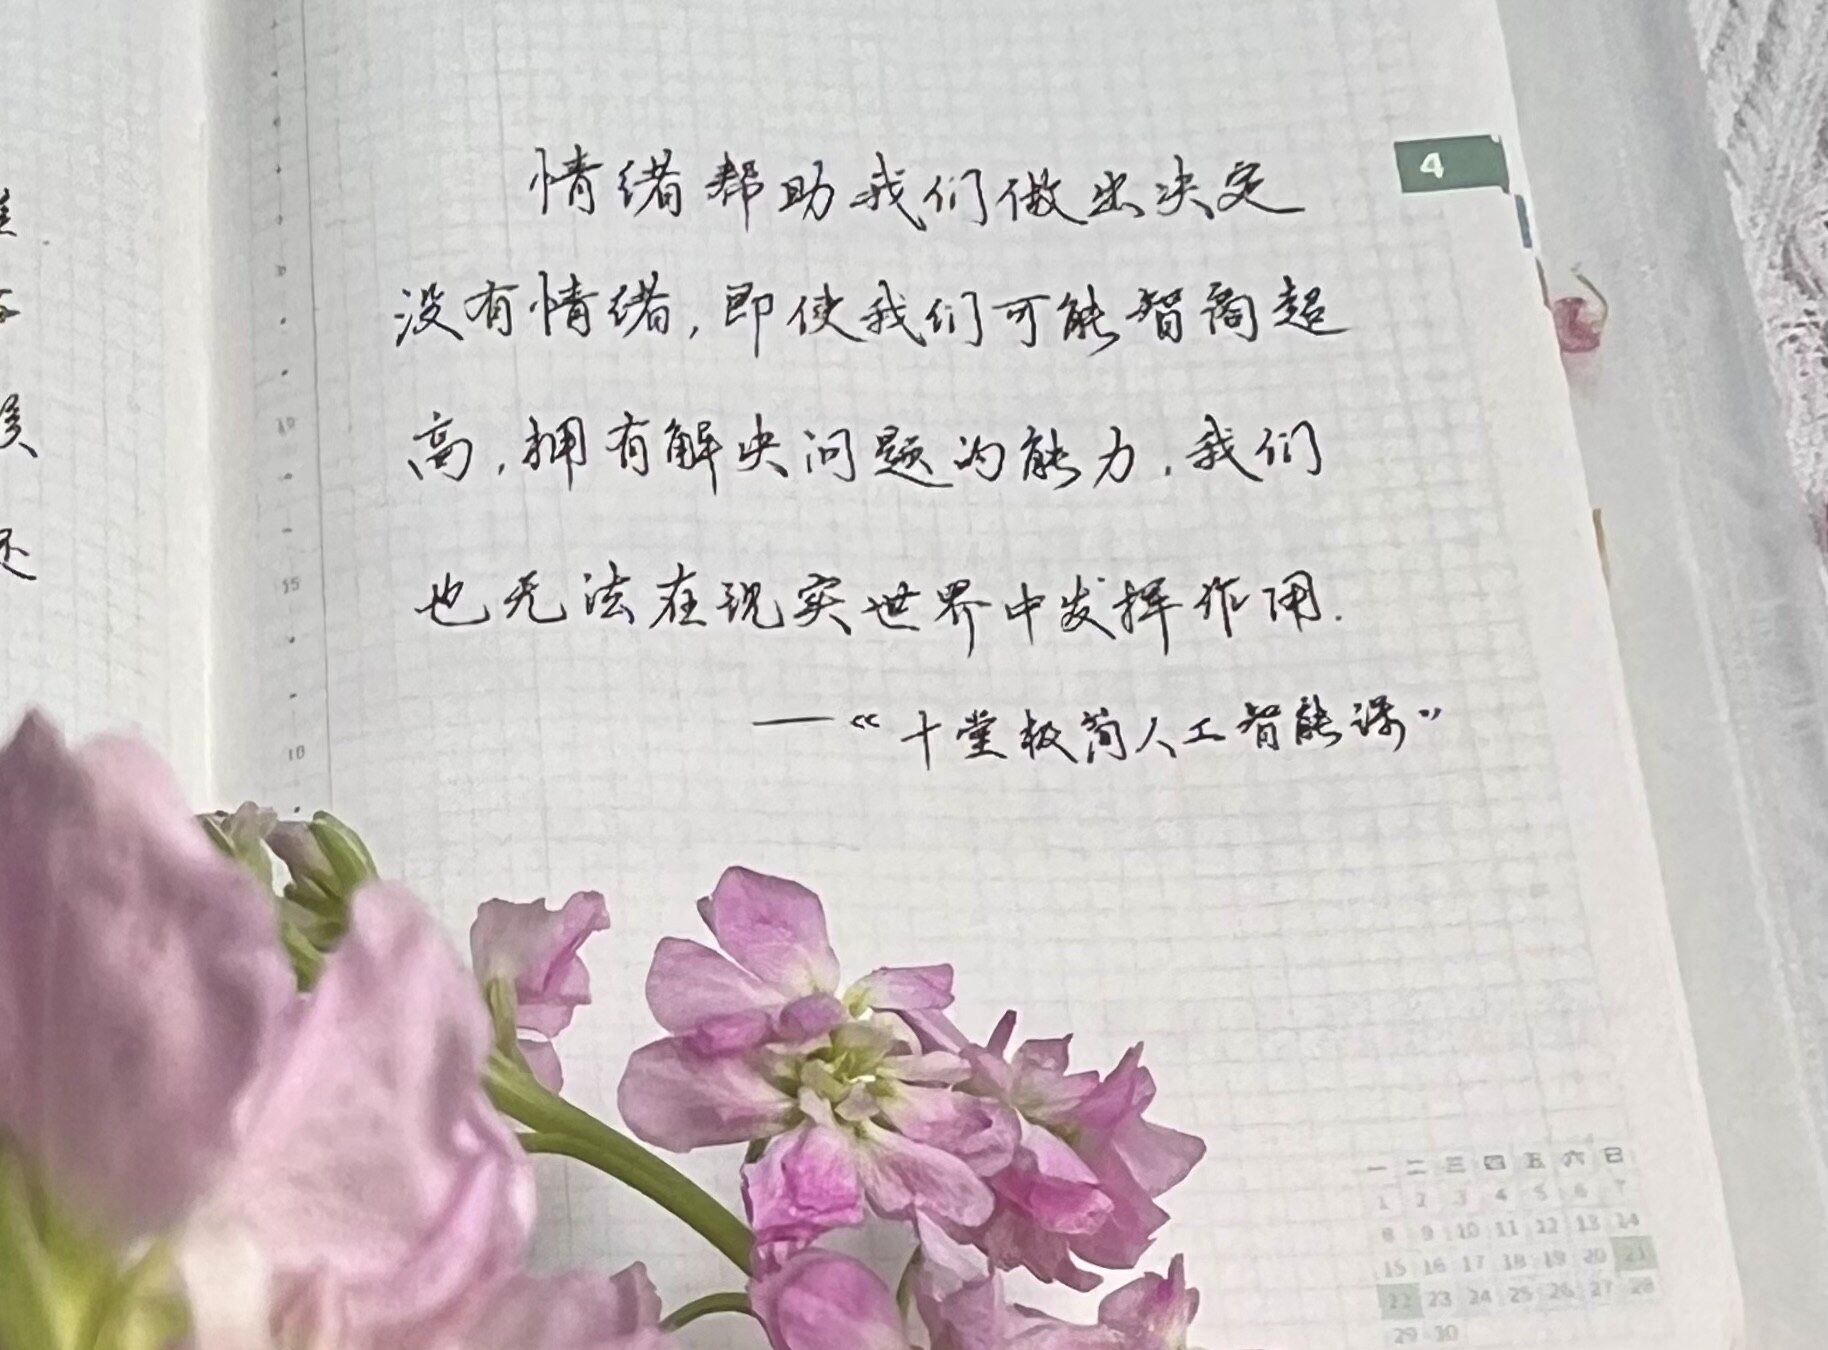 4
情绪帮助我们做出决定
没有情绪,即使我们可能智商超
高,拥有解决问题的能力.我们
也无法在现实世界中发挥作用.
——“十堂极简人工智能课”
15
10
一 二 三 四 五 六 日
1 2 3 4 5 6 7
8 9 10 11 12 13 14
15 16 17 18 19 20 21
22 23 24 25 26 27 28
29 30